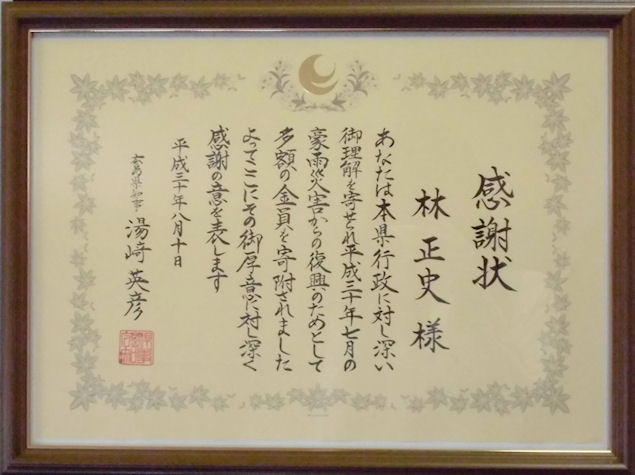 感謝状
林正史様
あなたは本県行政に対し深い
御理解を寄せられ平成三十年七月の
豪雨災害からの復興のためとして
多額の金員を寄附されました
よってここにその御厚意に対し深く
感謝の意を表します
平成三十年八月十日
広島県知事 湯﨑英彦